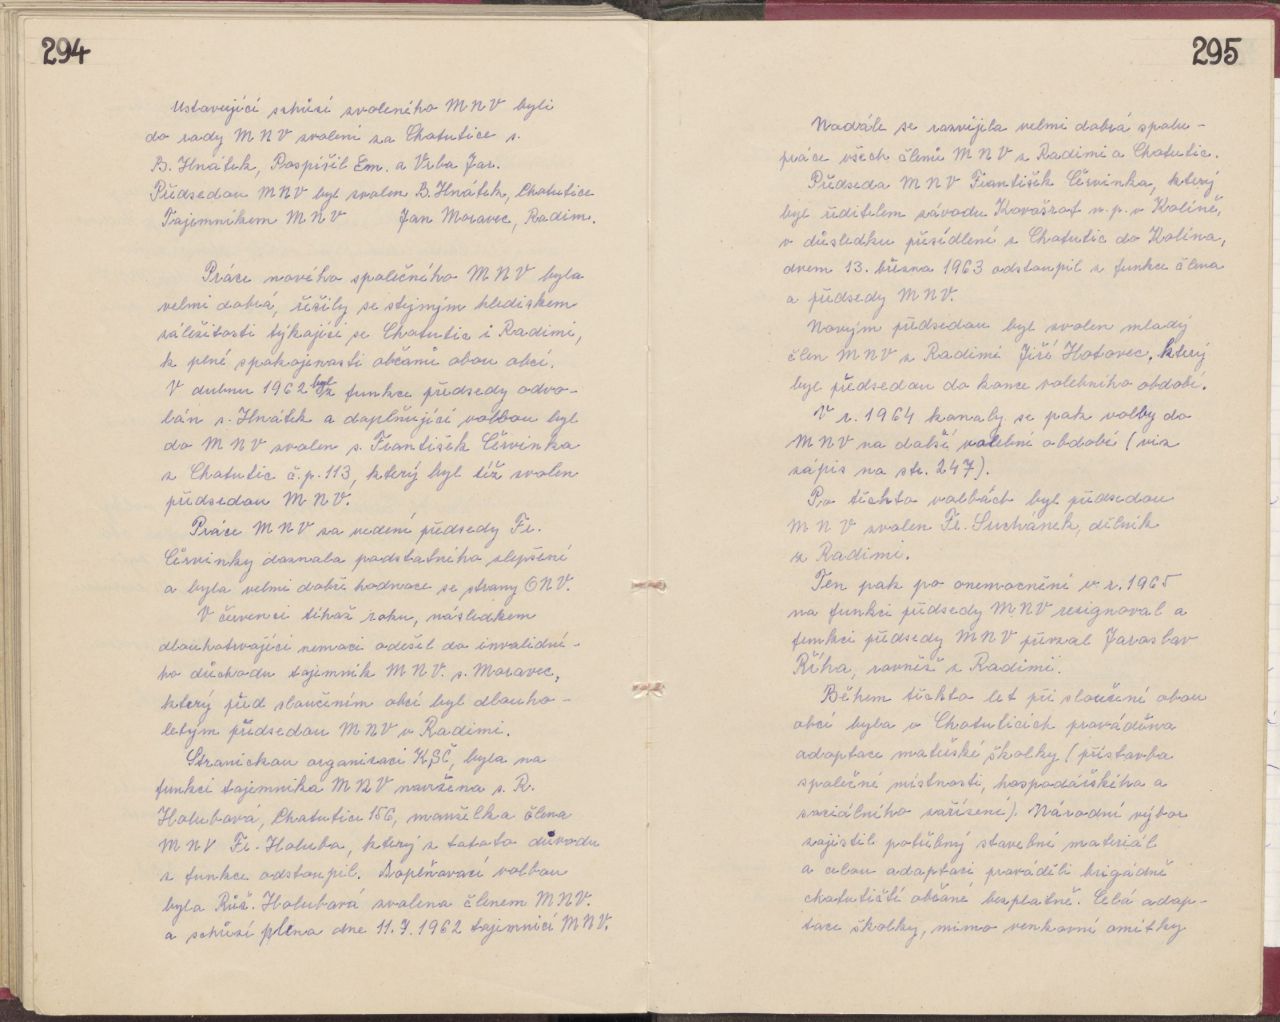 294
Ustavující schůzí zvoleného MNV byli
do rady MNV zvoleni za Chotutice s.
B. Hnátek, Pospíšil Em. a Vrba Jar.
Předsedou MNV byl zvolen B. Hnátek, Chotutice
Tajemníkem MNV Jan Moravec, Radim.
Práce nového společného MNV byla
velmi dobrá, řešily se stejným hlediskem
záležitosti týkající se Chotutic i Radimi,
k plné spokojenosti občanů obou obcí.
V dubnu 1962 byl z funkce předsedy odvo-
lán s. Hnátek a doplňující volbou byl
do MNV zvolen s. František Červinka
z Chotutic č.p. 113, který byl též zvolen
předsedou MNV.
Práce MNV za vedení předsedy Fr.
Červinky doznala podstatného zlepšení
a byla velmi dobře hodnoce se strany ONV.
V červenci téhož roku, následkem
dlouhotrvající nemoci odešel do invalidní-
ho důchodu tajemník MNV. s. Moravec,
který před sloučením obcí byl dlouho-
letým předsedou MNV v Radimi.
Stranickou organisací KSČ, byla na
funkci tajemníka MNV navržena s. R.
Holubová, Chotutice 156, manželka člena
MNV Fr. Holuba, který z tohoto důvodu
z funkce odstoupil. Doplňovací volbou
byla Růž. Holubová zvolena členem MNV.
a schůzí plena dne 11.7.1962 tajemnicí MNV.
295
Nadále se rozvíjela velmi dobrá spolu-
práce všech členů MNV z Radimi a Chotutic.
Předseda MNV František Červinka, který
byl ředitelem závodu Kovošrot n. p. v Kolíně,
v důsledku přesídlení z Chotutic do Kolína,
dnem 13. března 1963 odstoupil z funkce člena
a předsedy MNV.
Novým předsedou byl zvolen mladý
člen MNV z Radimi Jiří Hotovec, který
byl předsedou do konce volebního období.
V r. 1964 konaly se pak volby do
MNV na další volební období (viz
zápis na str. 247).
Po těchto volbách byl předsedou
MNV zvolen Fr. Suchánek, dělník
z Radimi.
Ten pak po onemocnění v r. 1965
na funkci předsedy MNV resignoval a
funkci předsedy MNV převzal Jaroslav
Říha, rovněž z Radimi.
Během těchto let při sloučení obou
obcí byla v Chotuticích prováděna
adaptace mateřské školky (přístavba
společné místnosti, hospodářského a
sociálního zařízení). Národní výbor
zajistil potřebný stavební materiál
a celou adaptaci prováděli brigádně
chotutičtí občané bezplatně. Celá adap-
tace školky, mimo venkovní omítky